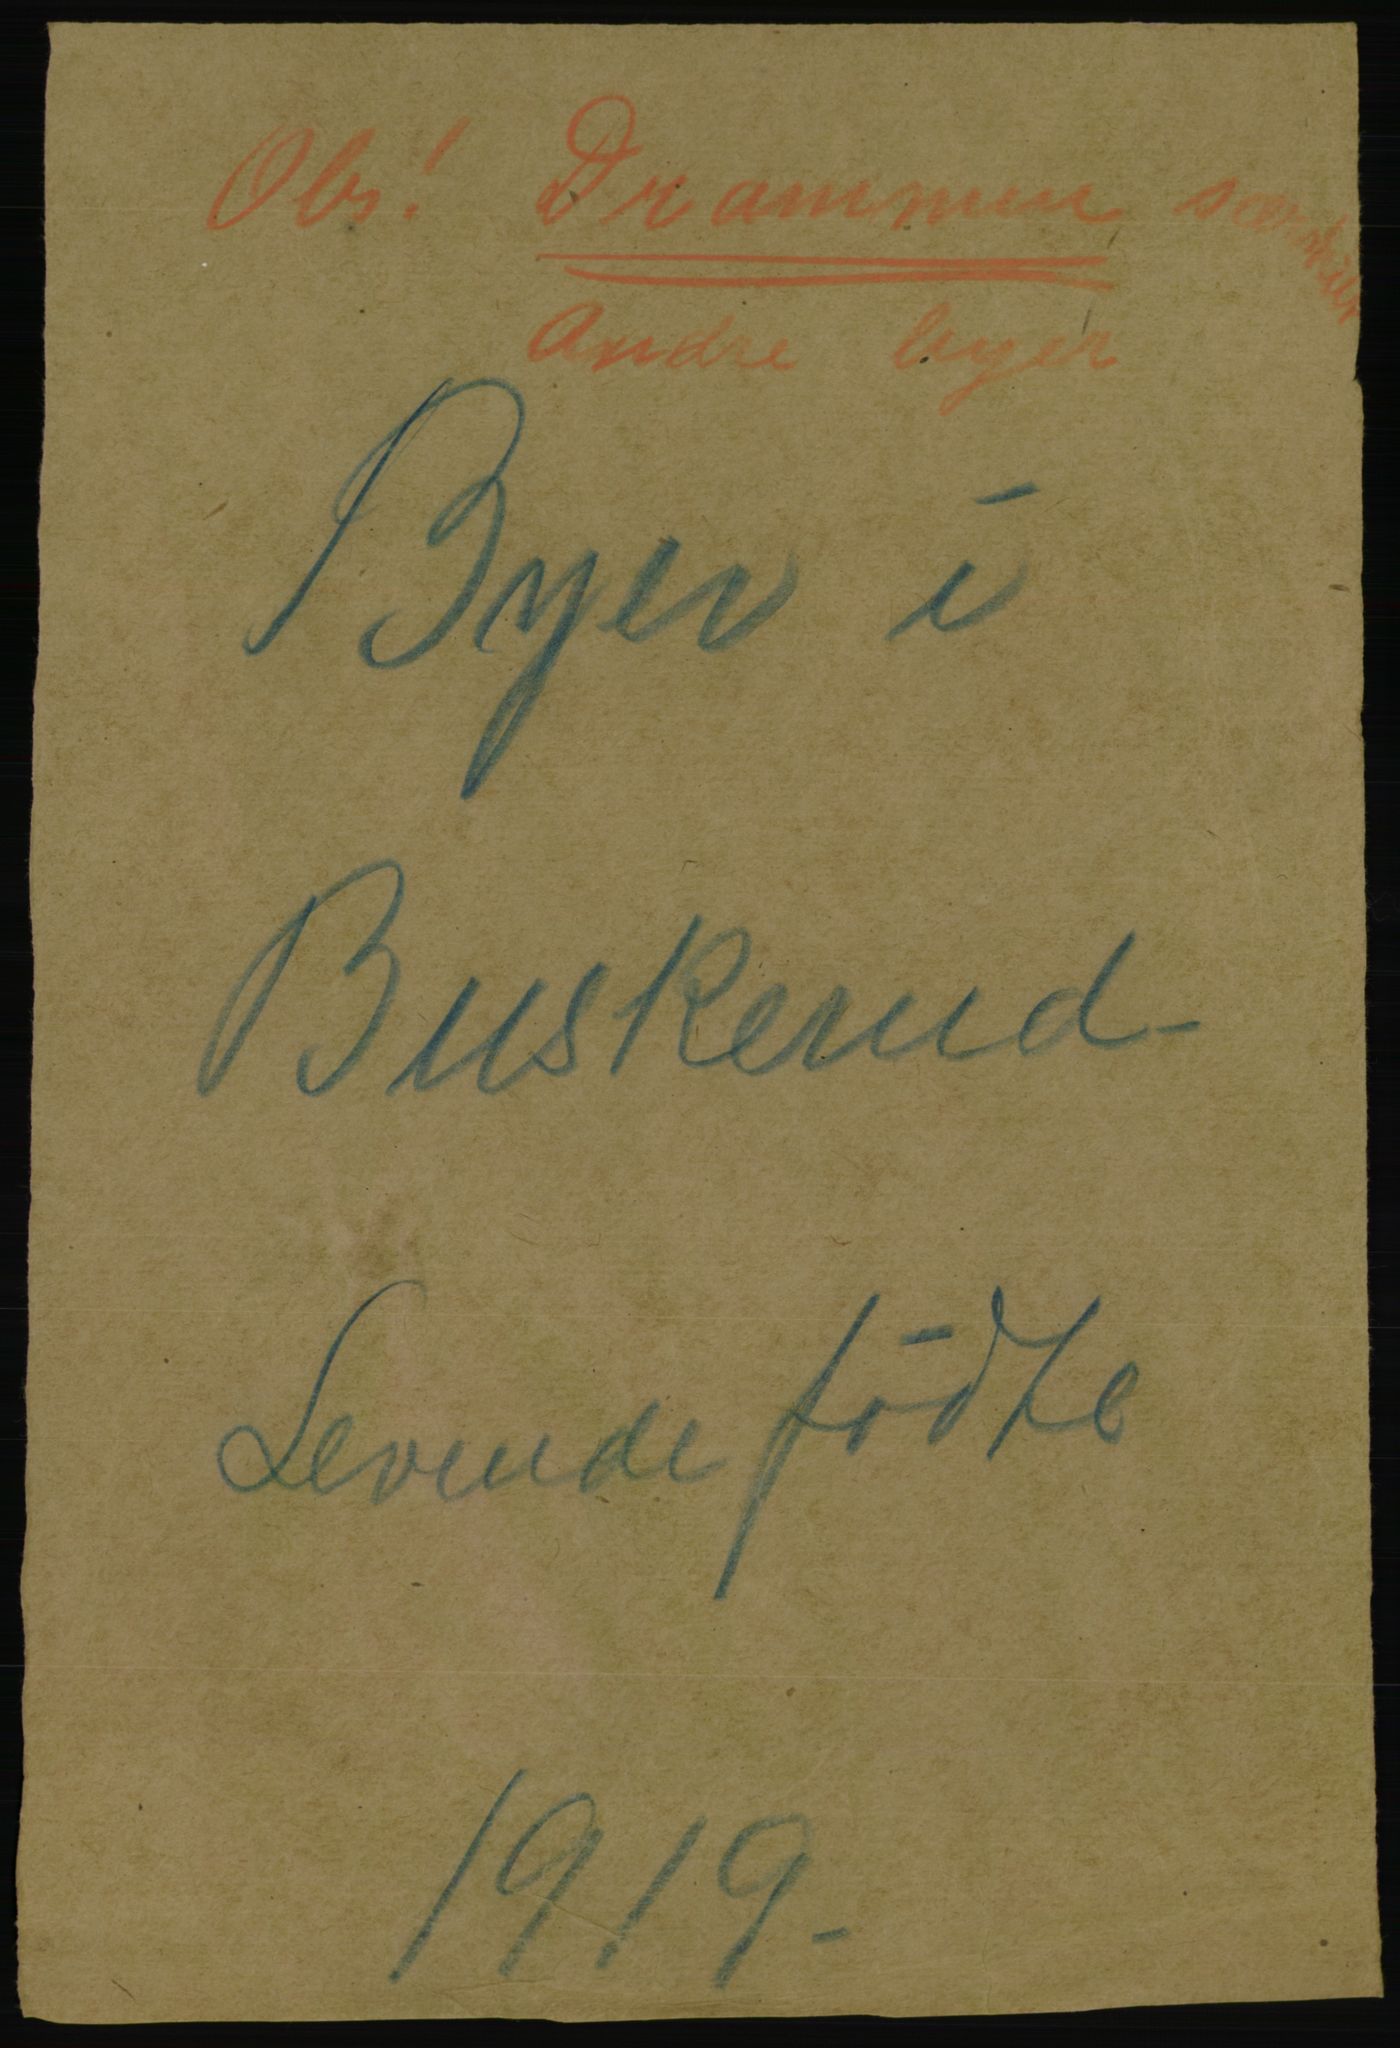 Obs! Drammen særskilt
Andre byer
Byer i
Buskerud
Levende fødte
1919.